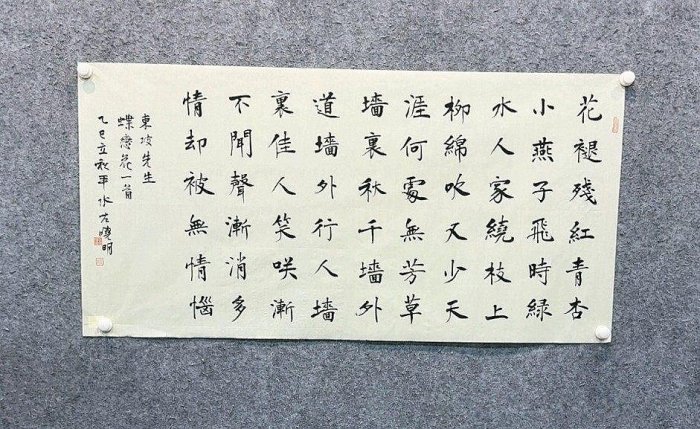 花褪殘紅青杏
小燕子飛時緑
水人家繞枝上
柳綿吹又少天
涯何處無芳草
墻裏秋千墻外
道墻外行人墻
裏佳人笑咲漸
不聞聲漸消多
情却被無情惱
東坡先生
蝶戀花一首
乙巳立秋平水左曉明